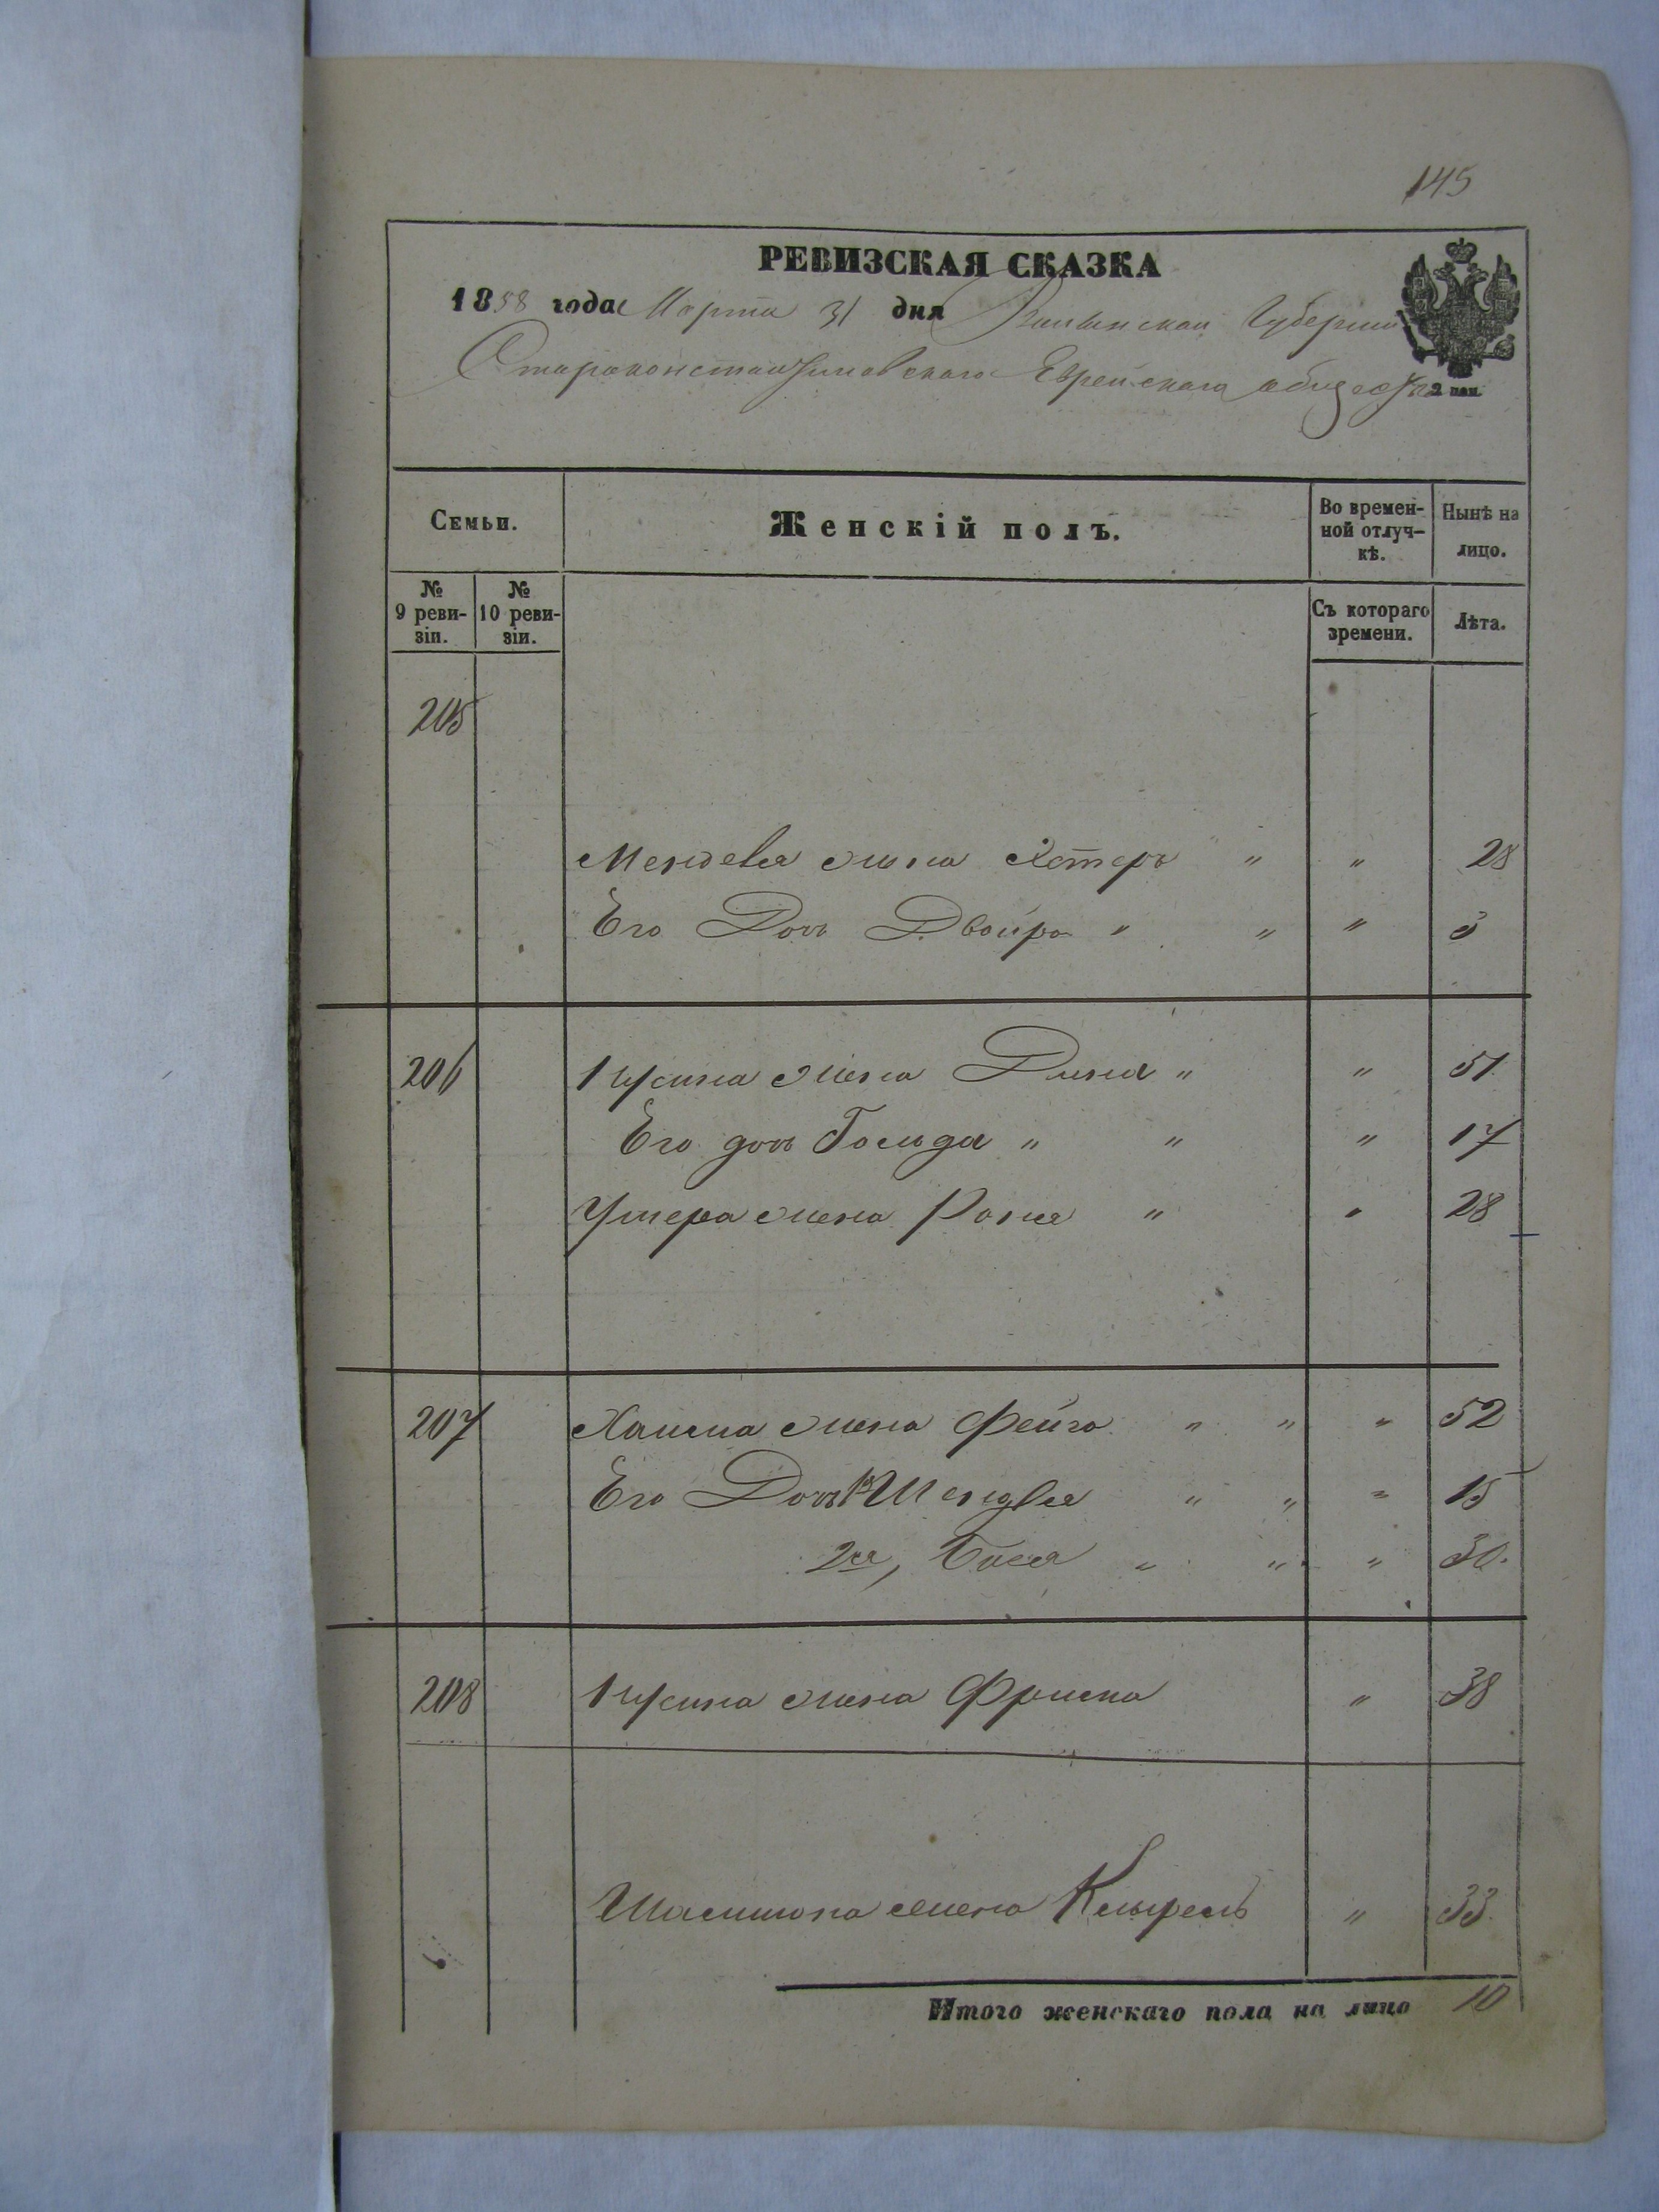 145
РЕВИЗСКАЯ СКАЗКА
1858 года Марта 31 дня Волынской Губернии
Староконстантиновскаго Еврейскаго общества
2 коп.
Семьи.
Женскій полъ.
Во времен-
ной отлуч-
кѣ.
Нынѣ на
лицо.
№
9 реви-
зіи.
№
10 реви-
зіи.
Съ котораго
времени.
Лѣта.
205
Менделя жена Хстеръ " " 28
Его Дочь Двойра " " "
206 Ицсина жена Дина " " 51
Его дочь Гольда " " " 17
Ушера жена Рония " " 28
207 Хаима жена Фейга " " " 52
Его Дочь 1я Шендля " " " 15
2я, Бася " " " 30.
208 Ицсина жена Фрима " 38
Шамшона жена Клыфель " 33.
Итого женскаго пола на лицо 10